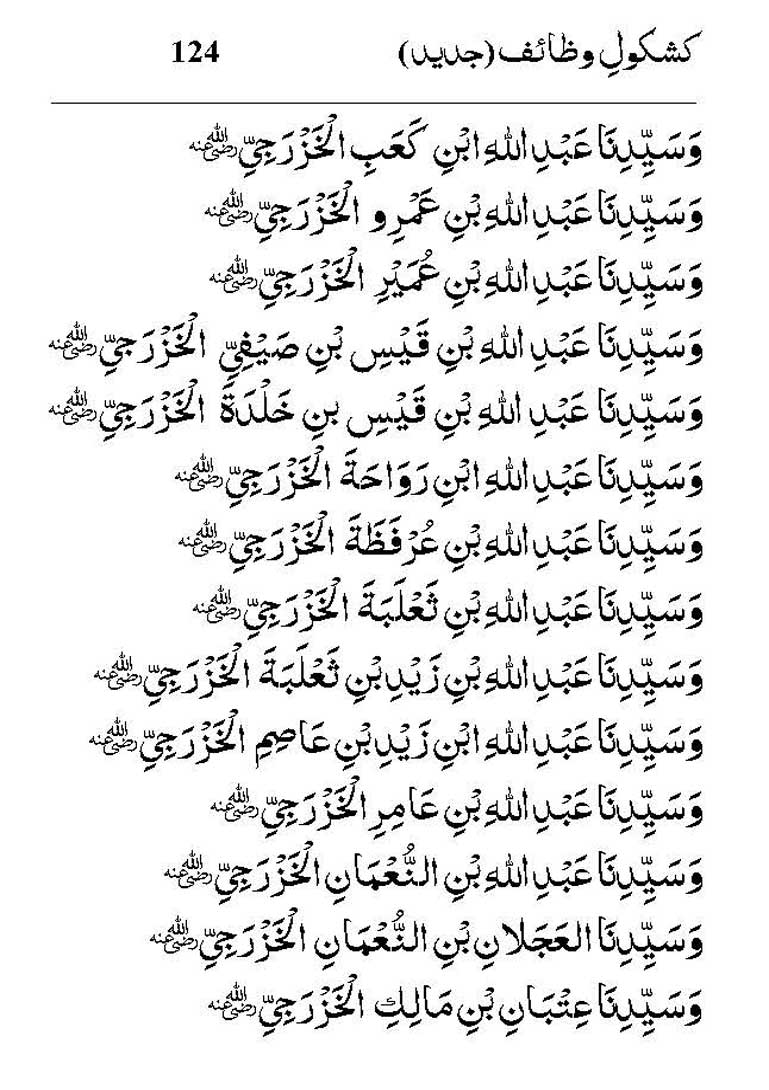 کشکولِ وظائف (جدید) 124
وَسَيِّدِنَا عَبْدِ اللهِ ابْنِ كَعَبِ الْخَزْرَجِيِّ رضی اللہ عنہ
وَسَيِّدِنَا عَبْدِ اللهِ بْنِ عَمْرِو الْخَزْرَجِيِّ رضی اللہ عنہ
وَسَيِّدِنَا عَبْدِ اللهِ بْنِ عُمَيْرِ الْخَزْرَجِيِّ رضی اللہ عنہ
وَسَيِّدِنَا عَبْدِ اللهِ بْنِ قَيْسِ بْنِ صَيْفِيِّ الْخَزْرَجِيِّ رضی اللہ عنہ
وَسَيِّدِنَا عَبْدِ اللهِ بْنِ قَيْسِ بنِ خَلْدَةَ الْخَزْرَجِيِّ رضی اللہ عنہ
وَسَيِّدِنَا عَبْدِ اللهِ ابْنِ رَوَاحَةَ الْخَزْرَجِيِّ رضی اللہ عنہ
وَسَيِّدِنَا عَبْدِ اللهِ بْنِ عُرْفَظَةَ الْخَزْرَجِيِّ رضی اللہ عنہ
وَسَيِّدِنَا عَبْدِ اللهِ بْنِ ثَعْلَبَةَ الْخَزْرَجِيِّ رضی اللہ عنہ
وَسَيِّدِنَا عَبْدِ اللهِ بْنِ زَيْدِ بْنِ ثَعْلَبَةَ الْخَزْرَجِيِّ رضی اللہ عنہ
وَسَيِّدِنَا عَبْدِ اللهِ ابْنِ زَيْدِ بْنِ عَاصِمِ الْخَزْرَجِيِّ رضی اللہ عنہ
وَسَيِّدِنَا عَبْدِ اللهِ بْنِ عَامِرِ الْخَزْرَجِيِّ رضی اللہ عنہ
وَسَيِّدِنَا عَبْدِ اللهِ بْنِ النُّعْمَانِ الْخَزْرَجِيِّ رضی اللہ عنہ
وَسَيِّدِنَا العَجَلانِ بْنِ النُّعْمَانِ الْخَزْرَجِيِّ رضی اللہ عنہ
وَسَيِّدِنَا عِتْبَانِ بْنِ مَالِكِ الْخَزْرَجِيِّ رضی اللہ عنہ